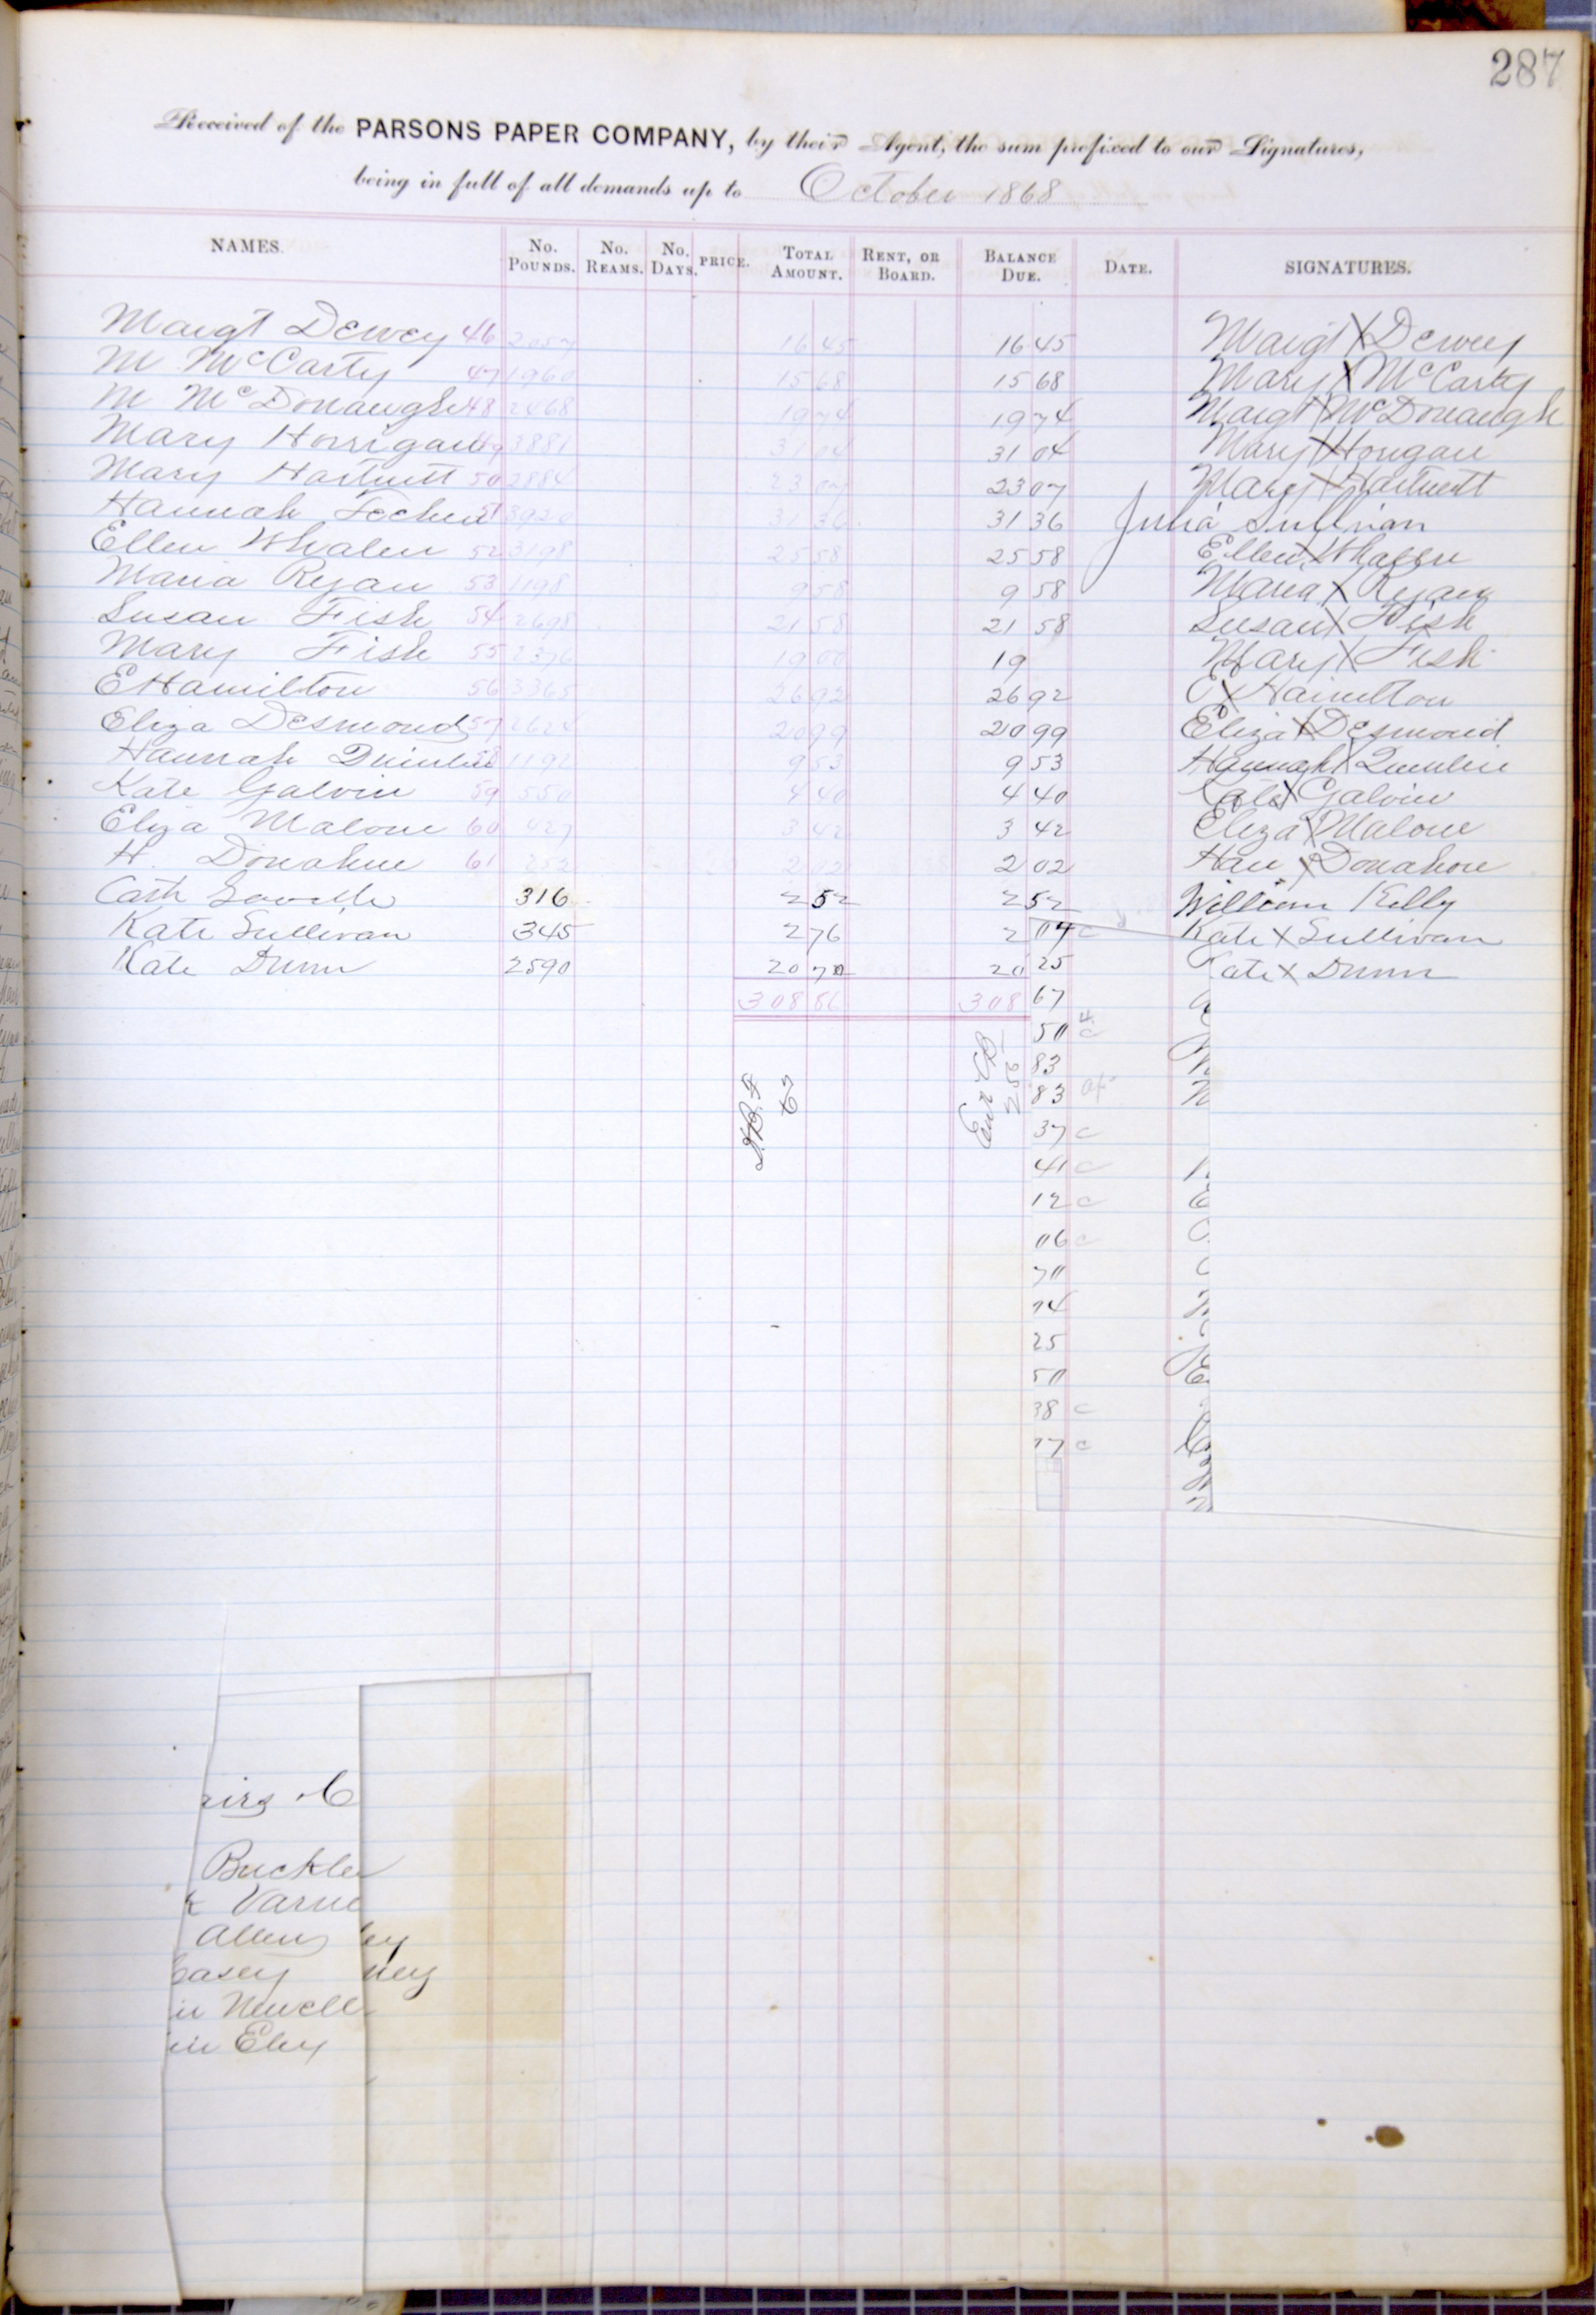 287
Received of the PARSONS PAPER COMPANY, by their Agent, the sum prefixed to our Signatures,
being in full of all demands up to October 1868
NAMES. No. POUNDS. No. REAMS. No. DAYS. PRICE. TOTAL AMOUNT. RENT, OR BOARD. BALANCE DUE. DATE. SIGNATURES.
Margt Dewey 46 2057 16 45 16 45 Margt X Dewey
M McCarty 47 1960 15 68 15 68 Mary X McCarty
M McDonaugh 48 2468 19 74 19 74 Margt X McDonaugh
Mary Horrigan 49 3881 31 04 31 04 Mary X Horigan
Mary Hartnett 50 2884 23 07 23 07 Mary X Hartnett
Hannah 51 3920 31 36 31 36 Julia Sullivan
Ellen Whalen 52 3198 25 58 25 58 Ellen X Whalen
Maria Ryan 53 1198 9 58 9 58 Maria X Ryan
Susan Fish 54 2698 21 58 21 58 Susan X Fish
Mary Fish 55 2376 19 00 19 Mary X Fish
E Hamilton 56 3365 26 92 26 92 E X Hamilton
Eliza Desmond 57 2624 20 99 20 99 Eliza X Desmond
Hannah Quinlin 58 1192 9 53 9 53 Hannah X Quinlin
Kate Galvin 59 550 4 40 4 40 Kate X Galvin
Eliza Malone 60 427 3 42 3 42 Eliza X Malone
H. Donahue 61 252 2 02 2 02 Han X Donahoe
Cash 316 2 52 2 52 William Kelly
Kate Sullivan 345 2 76 2 04 c Kate X Sullivan
Kate Dunn 2590 20 70 20 25 Kate X Dunn
308 86 308 67
50 c
83
83
37 c
41 c
12 c
06 c
70
74
25
50
38 c
77 c
Buckle
Varne
Allen ey
Casey ney
Newell
Ely